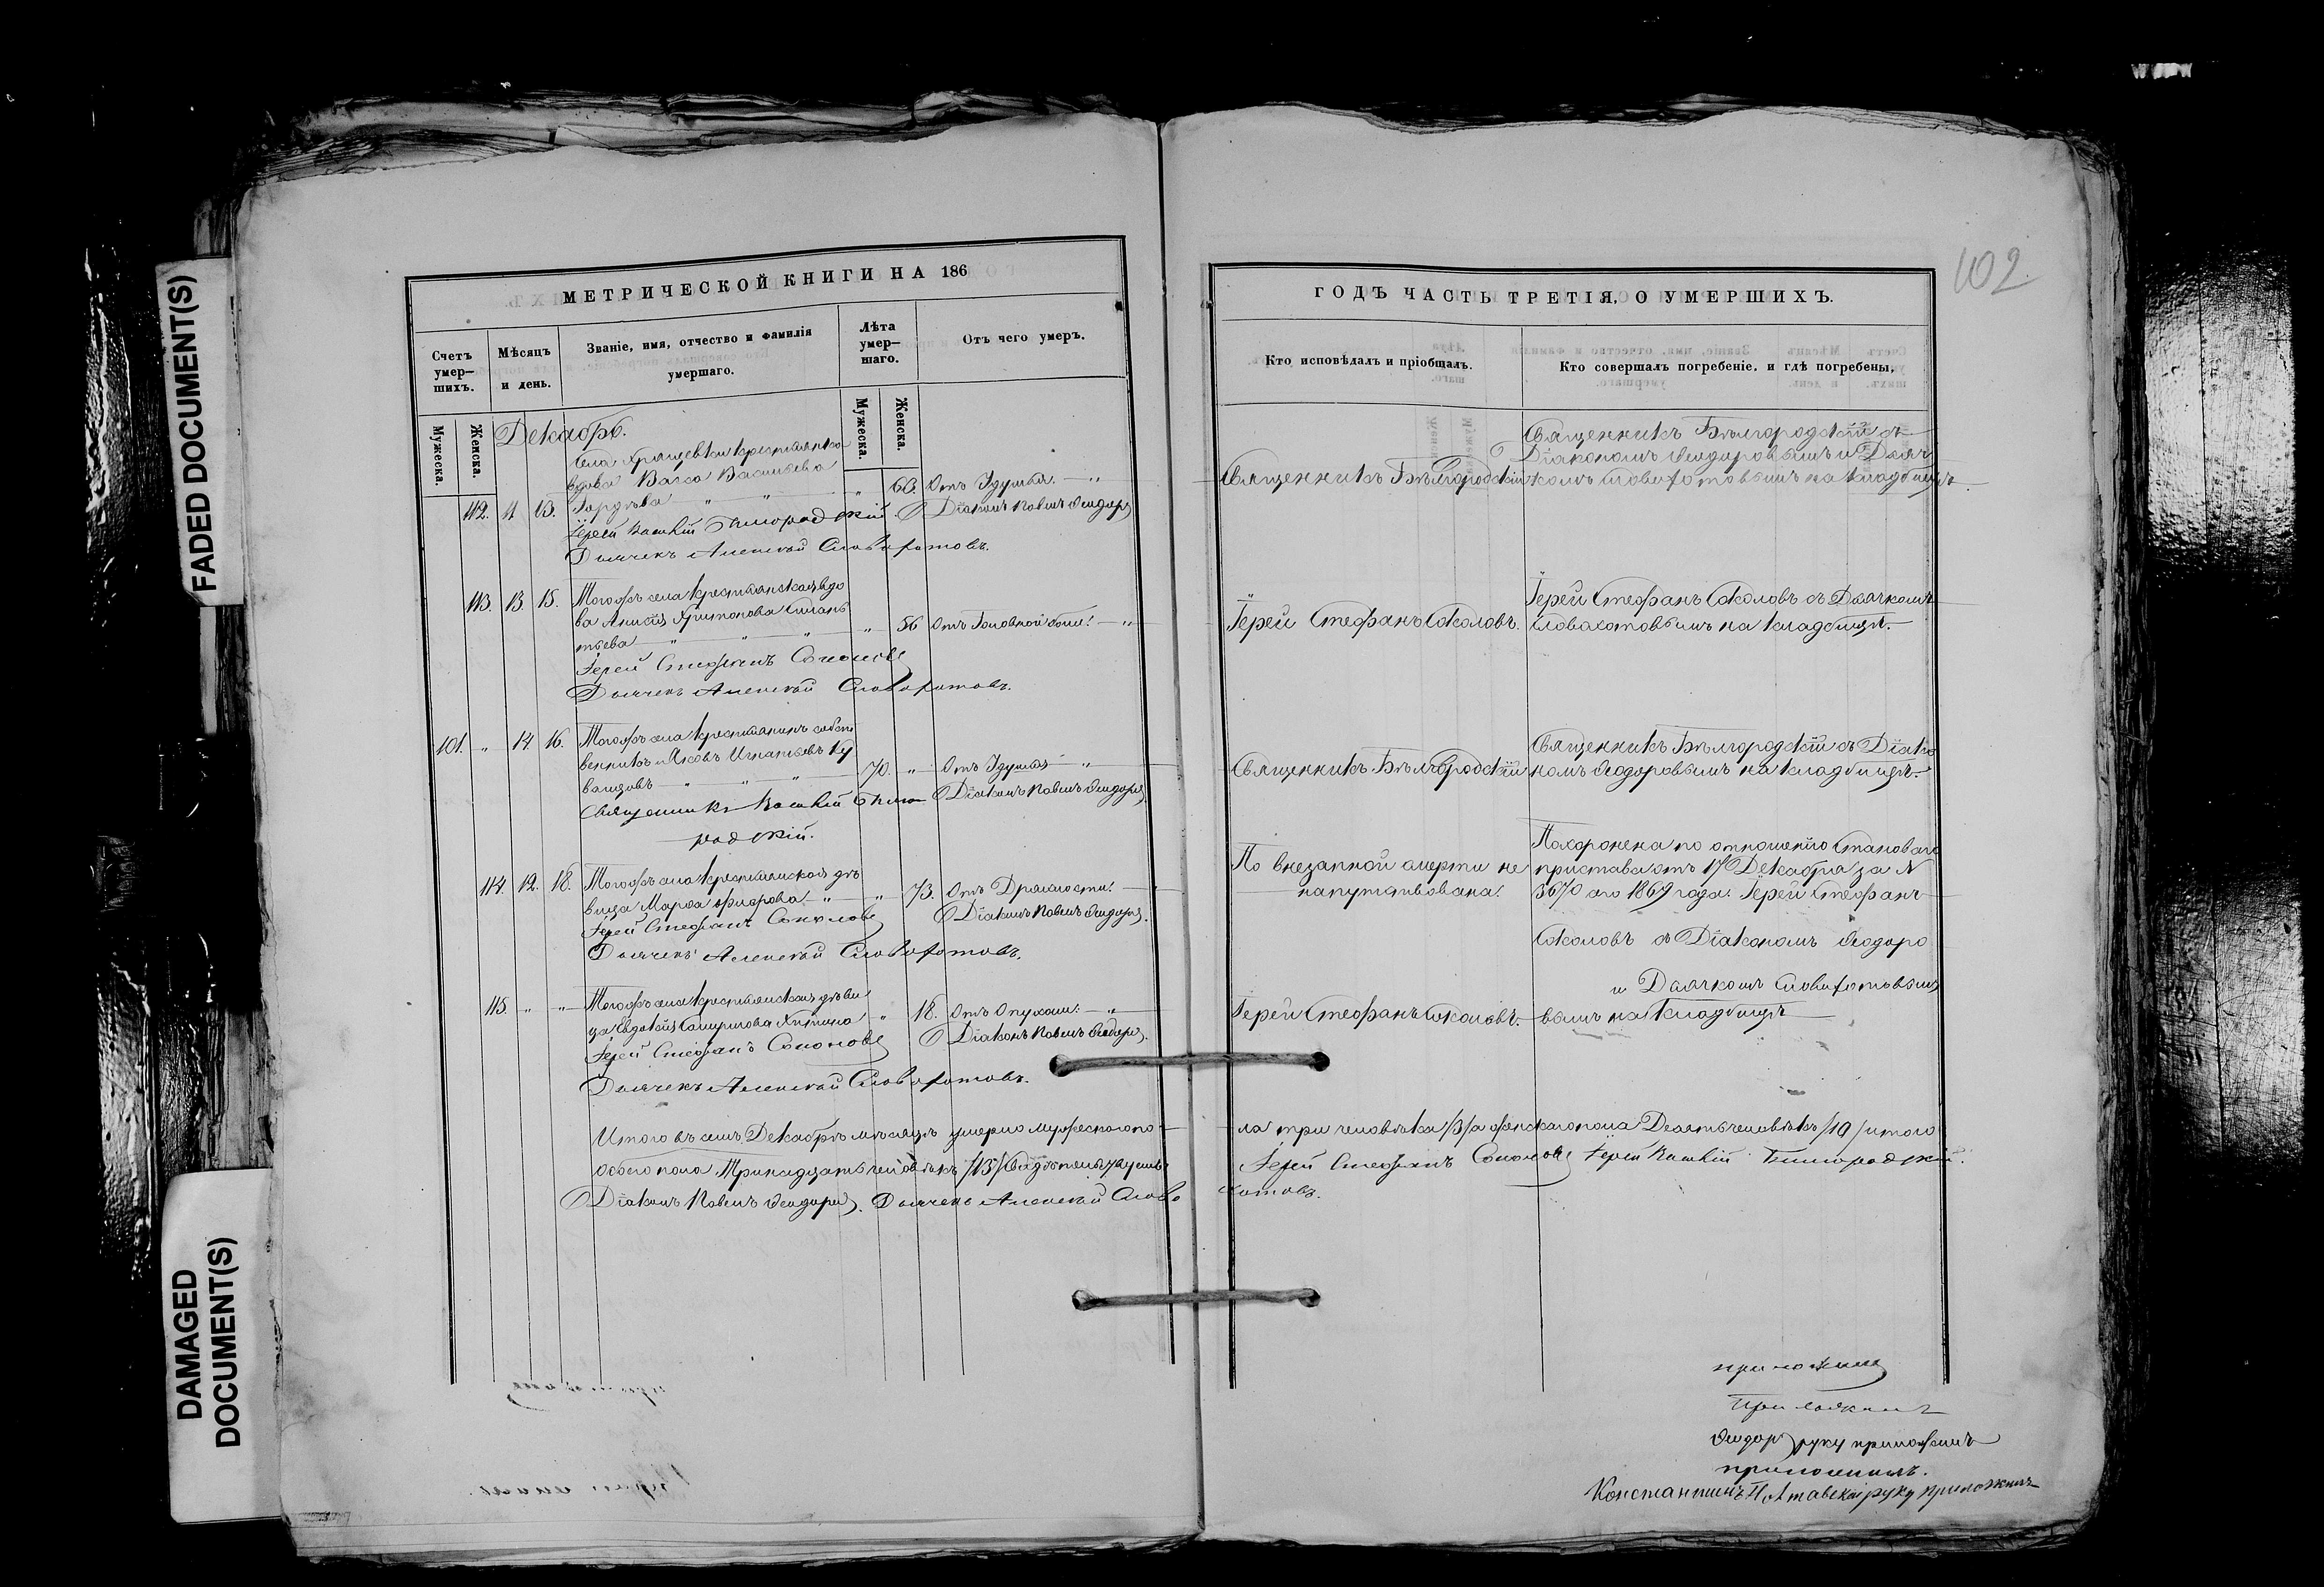 FADED DOCUMENT(S)
DAMAGED DOCUMENT(S)
МЕТРИЧЕСКОЙ КНИГИ НА 186
Счетъ умер—шихъ.
Мѣсяцъ и день.
Званіе, имя, отчество и фамилія умершаго.
Лѣта умер—шаго.
Отъ чего умеръ.
Мужеска.
Женска.
Мужеска.
Женска.
Декабрь.
Села Хрящевки крестьянка
вдова Васса Васильева
112. 11 13. Гордѣева " " " 60. Отъ Удушья. — "
Іерей Василій Бѣлгородскій Діаконъ Павелъ Ѳеодоровъ
Дьячекъ Алексѣй Словохотовъ.
113. 13. 15. Тогожъ села крестьянская вдо
ва Анисія Харитонова
тьева " " " " 56 Отъ Головной боли. — "
Іерей Стефанъ Соколовъ
Дьячекъ Алексѣй Словохотовъ.
101. " 14. 16. Тогожъ села крестьянинъ собст
венникъ Яковъ Игнатьевъ Ку
ванцовъ — " " " 70. " Отъ Удушья — "
Священникъ Василій Бѣлго Діаконъ Павелъ Ѳеодоровъ
родскій.
114. 12. 18. Тогожъ села крестьянская дѣ
вица Марѳа — " — " 73. Отъ Дряхлости. —
Іерей Стефанъ Соколовъ Діаконъ Павелъ Ѳеодоровъ.
Дьячекъ Алексѣй Словохотовъ.
115. " " Тогожъ села крестьянская дѣви
ца Евдокія " 18. Отъ Опухоли. — "
Іерей Стефанъ Соколовъ Діаконъ Павелъ Ѳеодоровъ.
Дьячекъ Алексѣй Словохотовъ.
Итого въ семъ Декабрѣ мѣсяцѣ умерло мужескаго по
обоего пола Тринадцать человѣкъ /13/
Діаконъ Павелъ Ѳеодоровъ. Дьячекъ Алексѣй Слово
102
ГОДЪ ЧАСТЬ ТРЕТІЯ, О УМЕРШИХЪ.
Кто исповѣдалъ и пріобщалъ.
Кто совершалъ погребеніе, и гдѣ погребены.
Священникъ Бѣлгородскій съ
Діакономъ Ѳеодоровымъ и Дьяч
Священникъ Бѣлгородскій комъ Словохотовымъ на кладбищѣ.
Іерей Стефанъ Соколовъ съ Дьячкомъ
Іерей Стефанъ Соколовъ. Словохотовымъ на кладбищѣ.
Священникъ Бѣлгородскій съ Діако
Священникъ Бѣлгородскій номъ Ѳеодоровымъ на кладбищѣ.
Похоронена по отношенію Становаго
По внезапной смерти не пристава отъ 17 Декабря за N
напутствована. 3670 сего 1869 года. Іерей Стефанъ
Соколовъ съ Діакономъ Ѳеодоро
и Дьячкомъ Словохотовымъ
Іерей Стефанъ Соколовъ. — вымъ на кладбищѣ
ла три человѣка /3/ а женскаго пола Десять человѣкъ /10/ итого
Іерей Стефанъ Соколовъ Іерей Василій Бѣлгородскій.
хотовъ.
приложилъ
Приложилъ
Ѳеодоровъ руку приложилъ
приложилъ.
Константинъ Полтавскій руку приложилъ